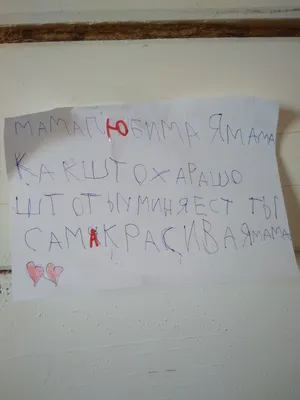 МАМАЛЮБИМА Я МАМА
КАКШТОХАРАШО
ШТОТЫУМИНЯЕСТ ТЫ
САМАКРАСИВАЯМАМА